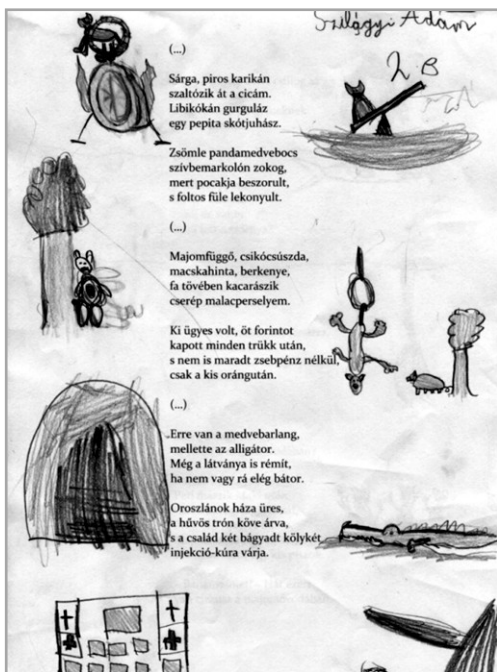 Szilágyi Ádám
2. B
(...)
Sárga, piros karikán
szaltózik át a cicám.
Libikókán gurguláz
egy pepita skótjuhász.
Zsömle pandamedvebocs
szívbemarkolón zokog,
mert pocakja beszorult,
s foltos füle lekonyult.
(...)
Majomfüggő, csikócsúszda,
macskahinta, berkenye,
fa tövében kacarászik
cserép malacperselyem.
Ki ügyes volt, öt forintot
kapott minden trükk után,
s nem is maradt zsebpénz nélkül,
csak a kis orángután.
(...)
Erre van a medvebarlang,
mellette az alligátor.
Még a látványa is rémít,
ha nem vagy rá elég bátor.
Oroszlánok háza üres,
a hűvös trón köve árva,
s a család két bágyadt kölykét
injekció-kúra várja.